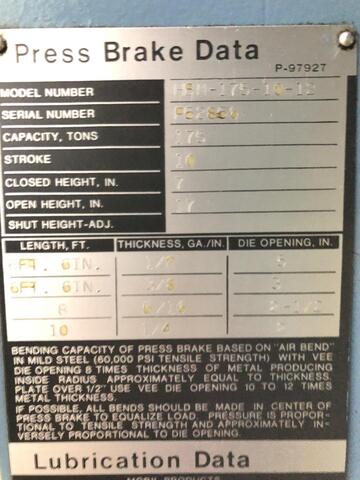 Press Brake Data
P-97927
MODEL NUMBER 175-10-12
SERIAL NUMBER
CAPACITY, TONS 175
STROKE 10
CLOSED HEIGHT, IN. 7
OPEN HEIGHT, IN. 17
SHUT HEIGHT-ADJ.
LENGTH, FT. THICKNESS, GA./IN. DIE OPENING, IN.
6FT. 6IN.
6FT. 6IN.
8
10 1/4
BENDING CAPACITY OF PRESS BRAKE BASED ON "AIR BEND"
IN MILD STEEL (60,000 PSI TENSILE STRENGTH) WITH VEE
DIE OPENING 8 TIMES THICKNESS OF METAL PRODUCING
INSIDE RADIUS APPROXIMATELY EQUAL TO THICKNESS.
PLATE OVER 1/2" USE VEE DIE OPENING 10 TO 12 TIMES
METAL THICKNESS.
IF POSSIBLE, ALL BENDS SHOULD BE MADE IN CENTER OF
PRESS BRAKE TO EQUALIZE LOAD. PRESSURE IS PROPOR-
TIONAL TO TENSILE STRENGTH AND APPROXIMATELY IN-
VERSELY PROPORTIONAL TO DIE OPENING.
Lubrication Data
MOBIL PRODUCTS